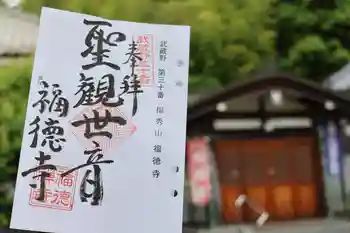 武蔵野 第三十番 福秀山 福徳寺
奉拝
聖観世音
福徳寺